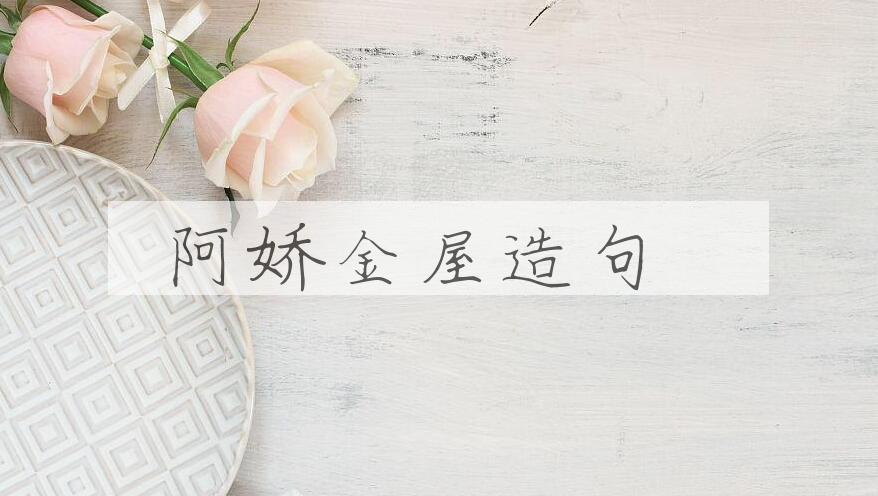 阿娇金屋造句